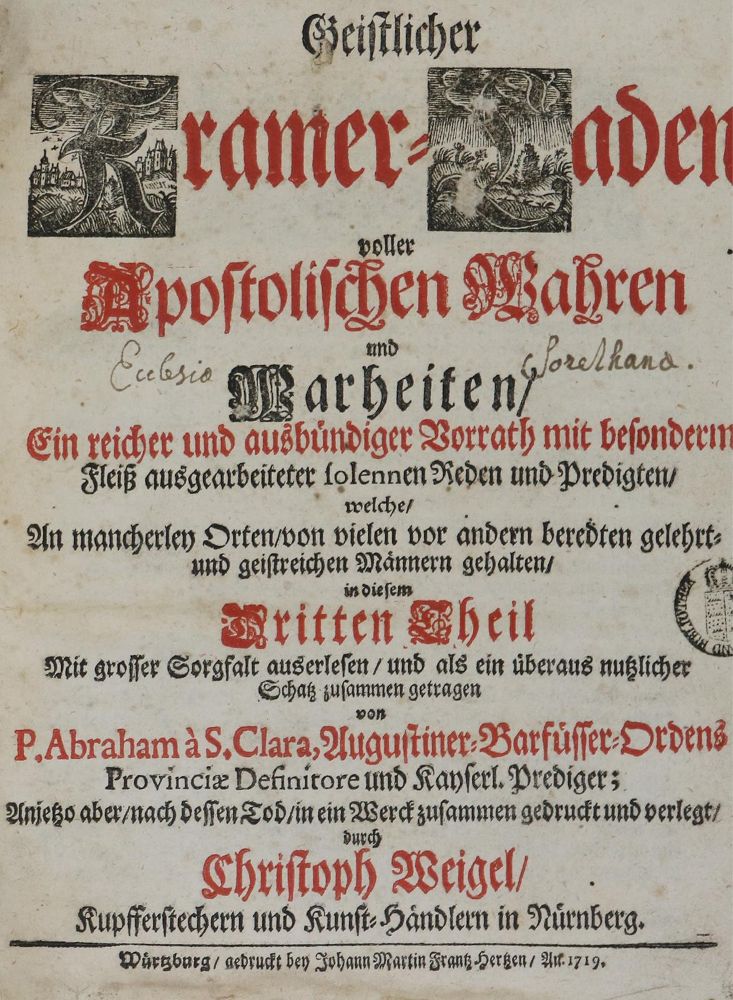 Geistlicher
Kramer-Laden
voller
Apostolischen Wahren
und
Ecclesiæ Sorethanæ.
Warheiten/
Ein reicher und ausbündiger Vorrath mit besonderm
Fleiß ausgearbeiteter solennen Reden und Predigten/
welche/
An mancherley Orten/von vielen vor andern beredten gelehrt-
und geistreichen Männern gehalten/
in diesem
Dritten Theil
Mit grosser Sorgfalt auserlesen/ und als ein überaus nutzlicher
Schatz zusammen getragen
von
P. Abraham à S. Clara, Augustiner-Barfüsser-Ordens
Provinciæ Definitore und Kayserl. Prediger;
Anjetzo aber/nach dessen Tod/in ein Werck zusammen gedruckt und verlegt/
durch
Christoph Weigel/
Kupfferstechern und Kunst-Händlern in Nürnberg.
Würtzburg/ gedruckt bey Johann Martin Frantz-Hertzen/ An. 1719.